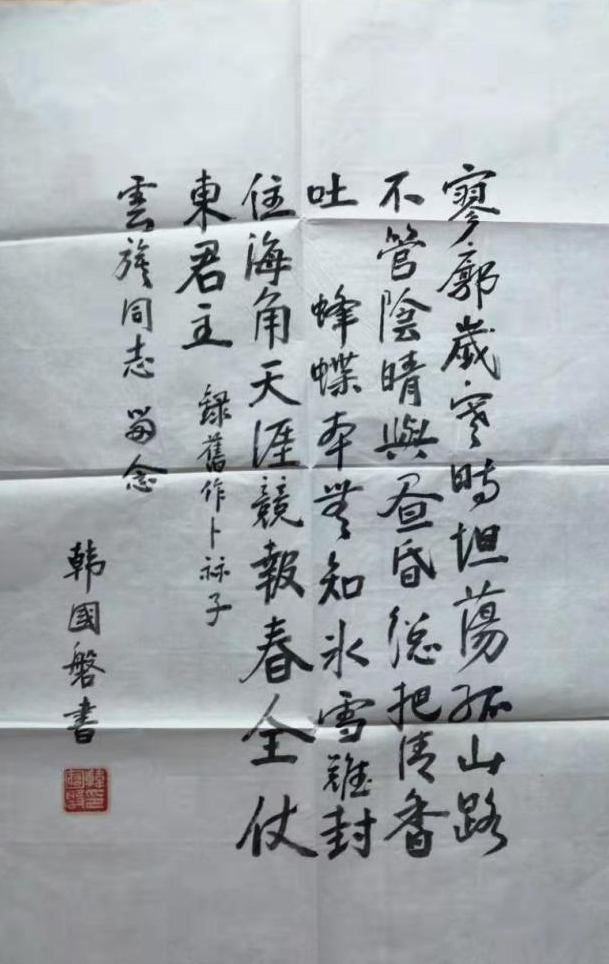 寥廓歲寒時坦蕩孤山路
不管陰晴與晝昏總把清香
吐 蜂蝶本無知冰雪難封
住海角天涯競報春全仗
東君主 錄舊作卜祘子
雲旋同志留念
韓國磐書